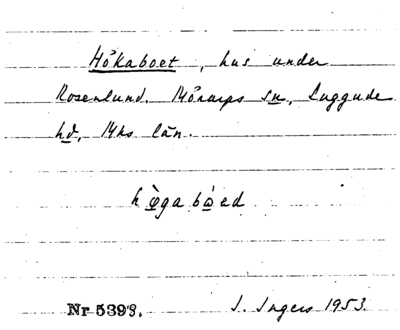 Hôkaboet, hus under
Rosenlund. Mörarps sn, Luggude
hd, Mhs län.
hø̀gabòed
Nr 5398. I. Ingers 1953.